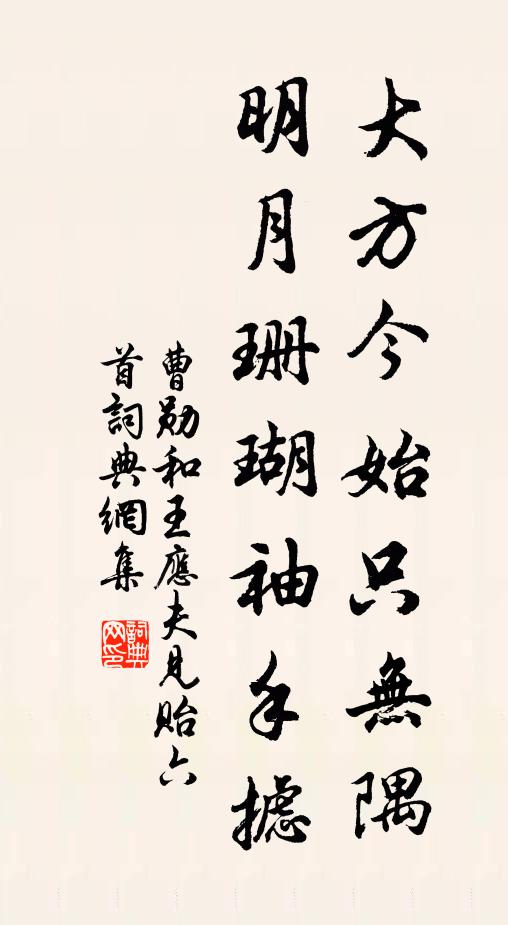 大方今始只無隅
明月珊瑚袖手攄
曹勛和王應夫見貽六
首詞典網集
詞典网印